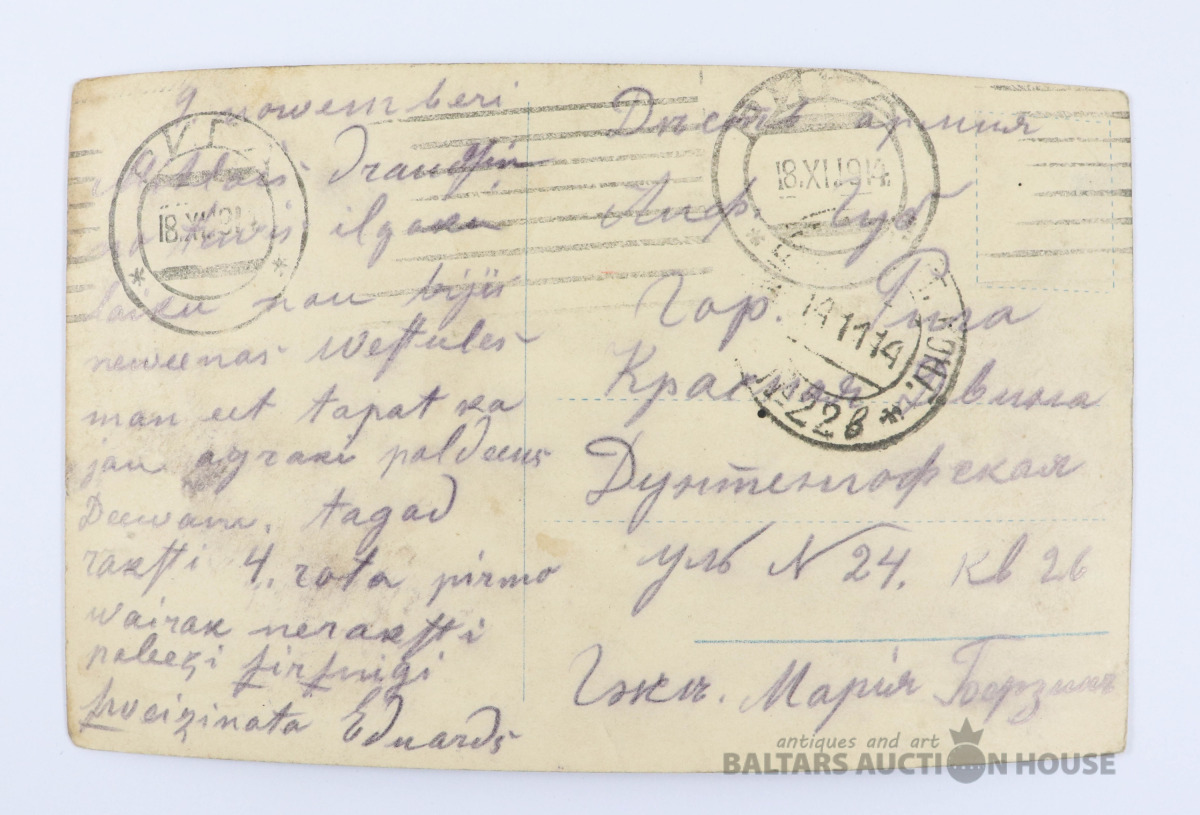 9 nowemberi
draudsin
ilgaku
laiku nau bijis
neweenas westules
man eet tapat ka
jau agraki paldeews
Deewam. tagad
raksti 4. rota pirmo
wairak neraksti
paleezi sirsnigi
sweizinata Eduards
Дѣств армия
Лиф. Губ
Гор. Рига
Красная Двина
Дунтенгофская
уль N 24. кв 26
Гжѣ. Марія Берзинь
18.XI.1914
18.XI.191
14 11 14
№ 226
antiques and art
BALTARS AUCTION HOUSE